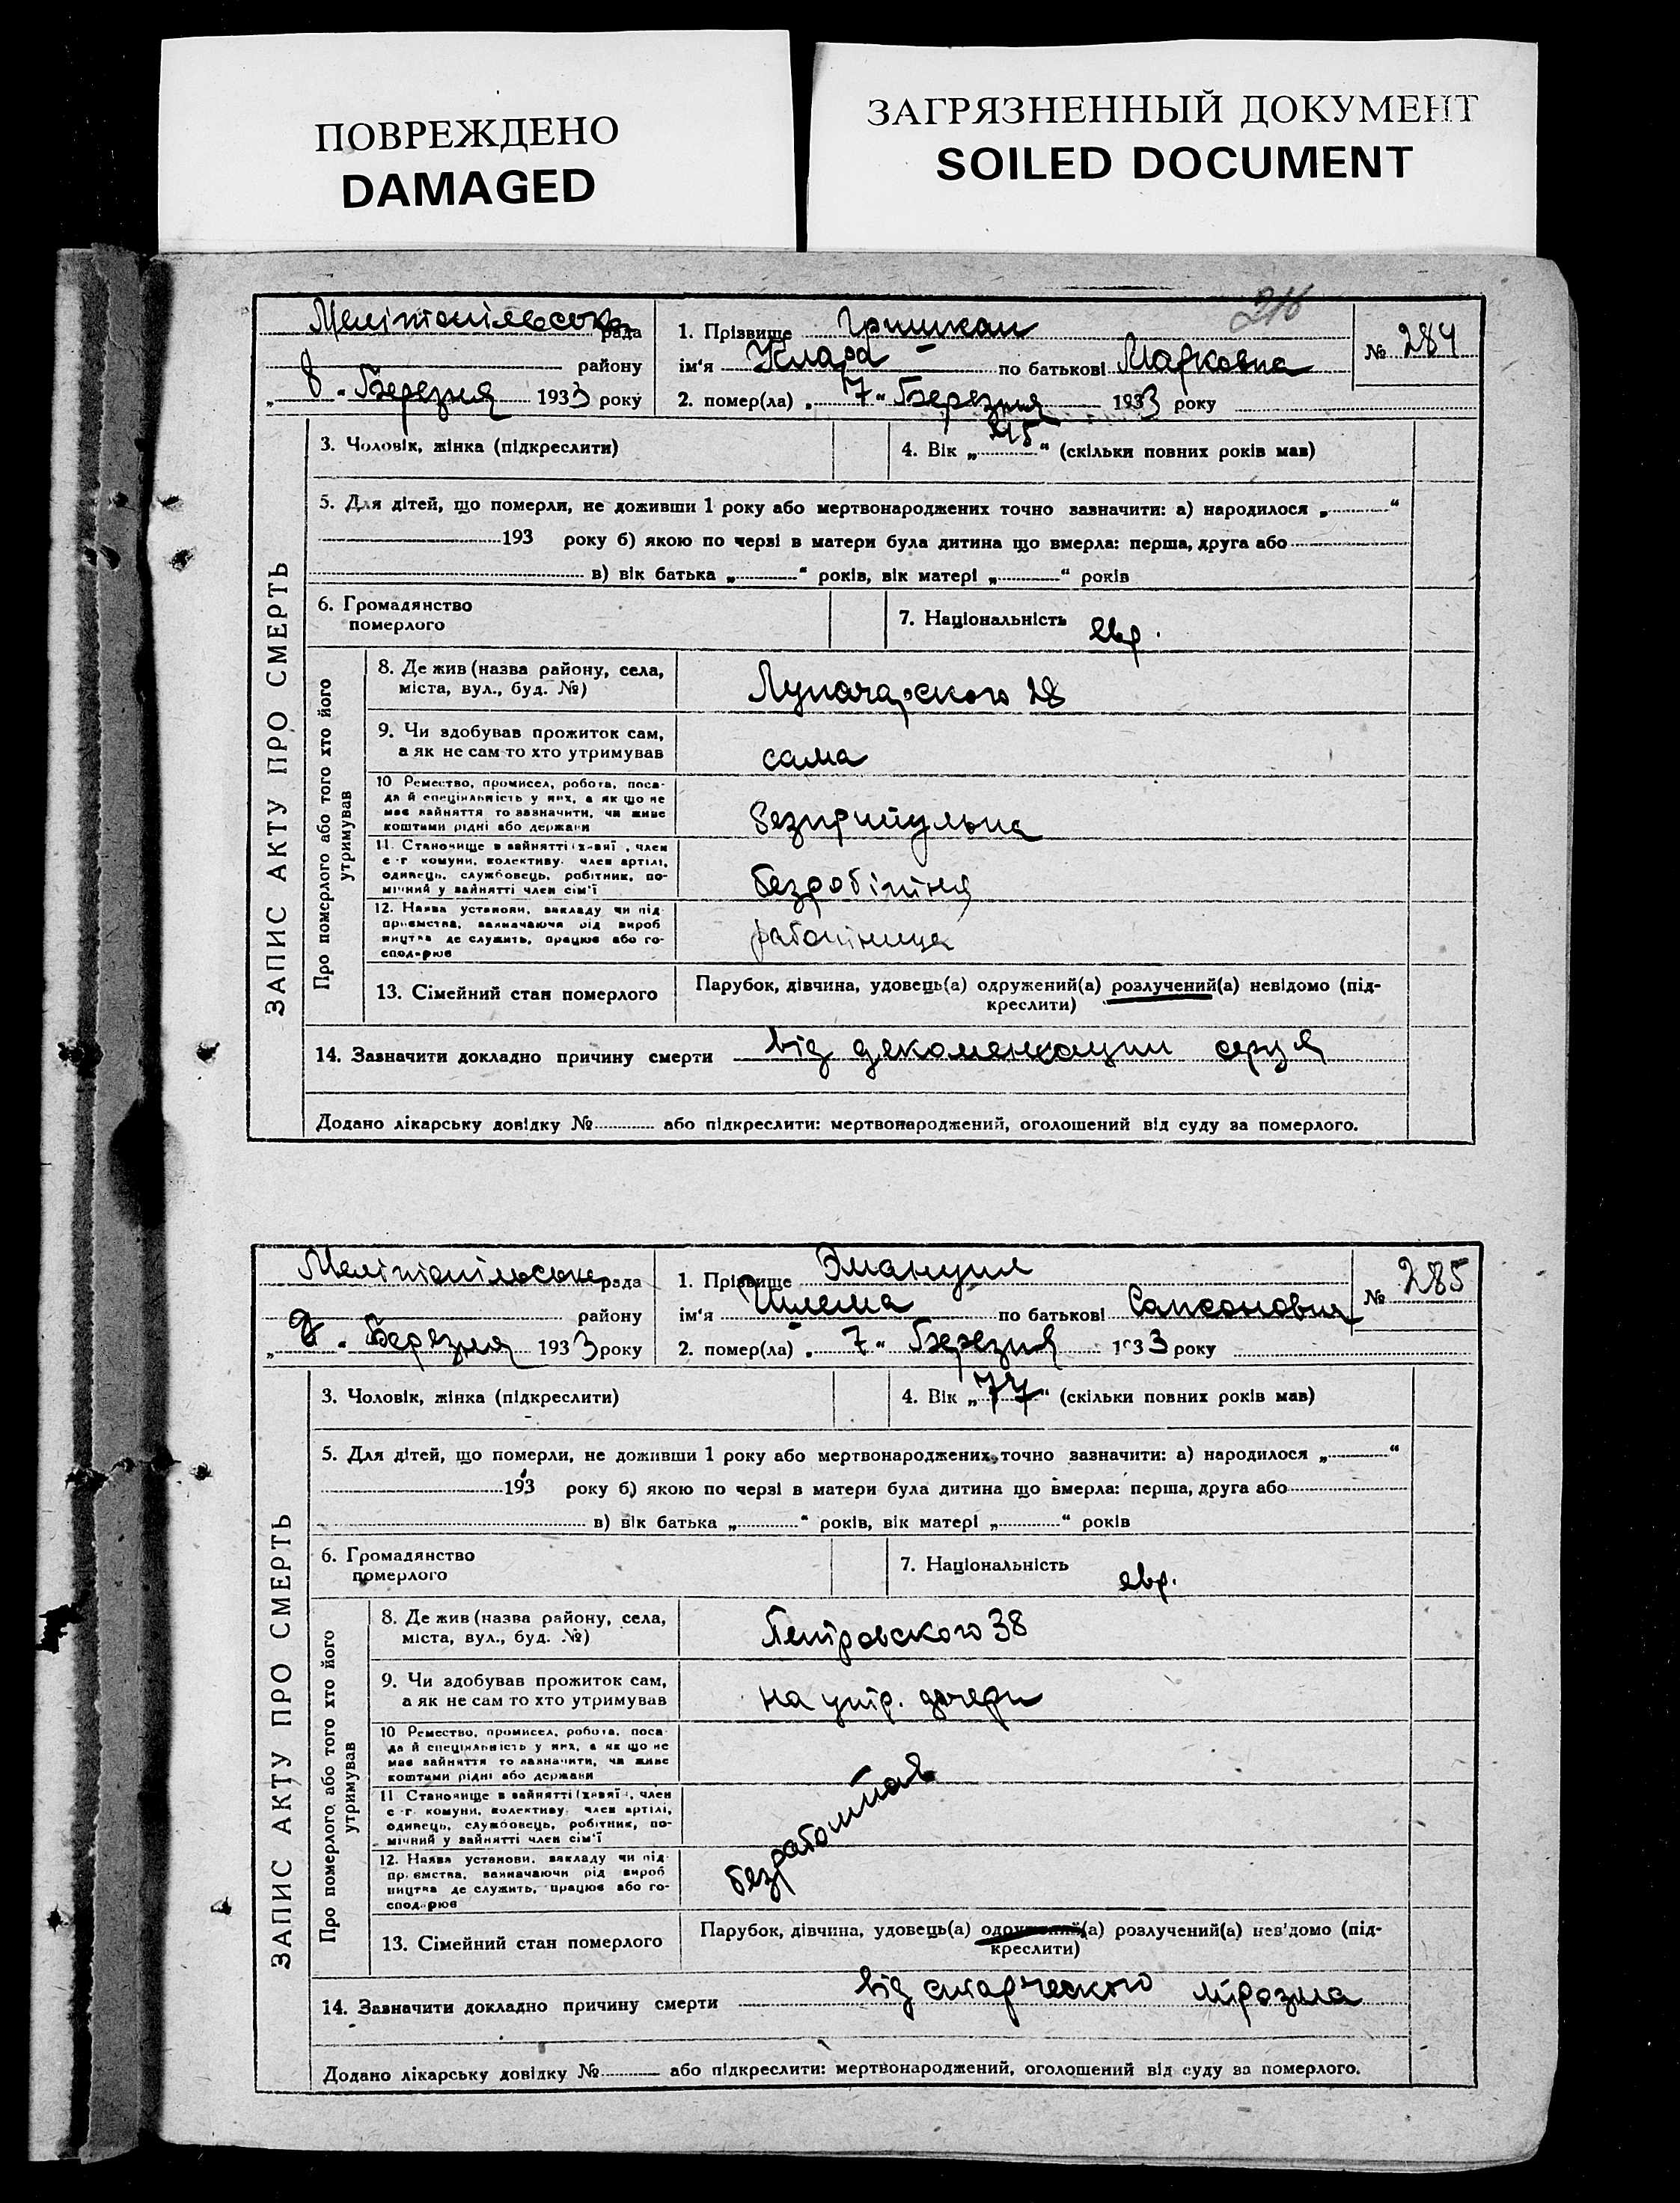 ПОВРЕЖДЕНО
DAMAGED
ЗАГРЯЗНЕННЫЙ ДОКУМЕНТ
SOILED DOCUMENT
216
ЗАПИС АКТУ ПРО СМЕРТЬ
Мелітопільська рада
району
„ 8 " Березня 1933 року
1. Прізвище Гришкан
ім'я Клара по батькові Марковна
2. помер(ла) „ 7 " Березня 1933 року
№ 284
3. Чоловік, жінка (підкреслити)
4. Вік „ 45 " (скільки повних років мав)
5. Для дітей, що померли, не доживши 1 року або мертвонароджених точно зазначити: а) народилося „ "
193 року б) якою по черзі в матери була дитина що вмерла: перша, друга або
в) вік батька „ " років, вік матері „ " років
6. Громадянство
померлого
7. Національність евр.
Про померлого або того хто його
утримував
8. Де жив (назва району, села,
міста, вул., буд. №)
Луначарского 28
9. Чи здобував прожиток сам,
а як не сам то хто утримував
сама
10 Ремество, промисел, робота, поса-
да й спеціяльність у них, а як що не
має зайняття то зазначити, чи живе
коштами рідні або держави
безпритульна
11. Становище в зайнятті (хазяї, член
с-г комуни, колективу, член артілі,
одинець, службовець, робітник, по-
мічний у зайнятті член сім'ї
безробітня
12. Назва установи, закладу чи під
приємства, зазначаючи рід вироб
ництва де служить, працює або го-
сподарює
работніца
13. Сімейний стан померлого
Парубок, дівчина, удовець(а) одружений(а) розлучений(а) невідомо (під-
креслити)
14. Зазначити докладно причину смерти від декоменсации серця
Додано лікарську довідку № або підкреслити: мертвонароджений, оголошений від суду за померлого.
ЗАПИС АКТУ ПРО СМЕРТЬ
Мелітопільська рада
району
„ 8 " Березня 1933 року
1. Прізвище Эмануил
ім'я Шлема по батькові Самсоновия
2. помер(ла) „ 7 " Березня 1933 року
№ 285
3. Чоловік, жінка (підкреслити)
4. Вік „ 77 " (скільки повних років мав)
5. Для дітей, що померли, не доживши 1 року або мертвонароджених точно зазначити: а) народилося „ "
193 року б) якою по черзі в матери була дитина що вмерла: перша, друга або
в) вік батька „ " років, вік матері „ " років
6. Громадянство
померлого
7. Національність евр.
Про померлого або того хто його
утримував
8. Де жив (назва району, села,
міста, вул., буд. №)
Петровского 38
9. Чи здобував прожиток сам,
а як не сам то хто утримував
на утр. дочери
10 Ремество, промисел, робота, поса-
да й спеціяльність у них, а як що не
має зайняття то зазначити, чи живе
коштами рідні або держави
11 Становище в зайнятті (хазяї, член
с-г комуни, колективу, член артілі,
одинець, службовець, робітник, по-
мічний у зайнятті член сім'ї
12. Назва установи, закладу чи під
приємства, зазначаючи рід вироб
ництва де служить, працює або го-
сподарює
13. Сімейний стан померлого
Парубок, дівчина, удовець(а) одружений(а) розлучений(а) нев'домо (під-
креслити)
14. Зазначити докладно причину смерти від старческого мірозма
Додано лікарську довідку № або підкреслити: мертвонароджений, оголошений від суду за померлого.